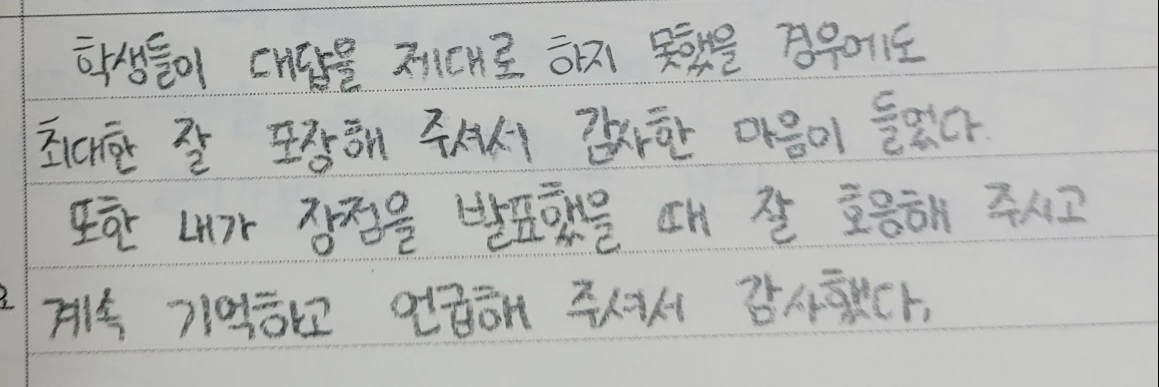 학생들이 대답을 제대로 하지 못했을 경우에도
최대한 잘 포장해 주셔서 감사한 마음이 들었다.
또한 내가 장점을 발표했을 때 잘 호응해 주시고
계속 기억하고 언급해 주셔서 감사했다.